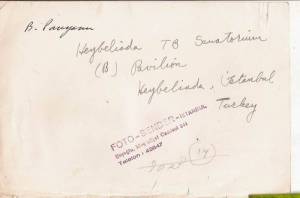 B.
Heybeliada TB Sanatorium
(B) Pavilion
Heybeliada, İstanbul
Turkey
FOTO-SENDER-ISTANBUL
Beyoğlu,
Telefon: 40847
(14)